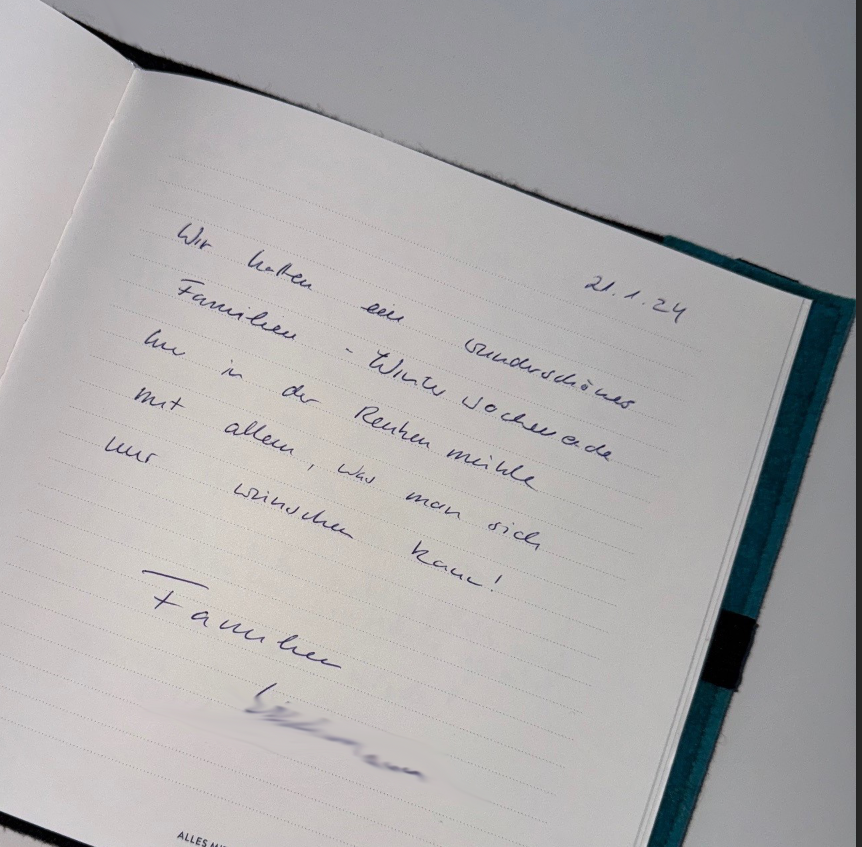 21.1.24
Wir hatten ein wunderschönes
Familien - Winterwochenende
hier in der Reuhen mühle
mit allem, was man sich
nur wünschen kann!
Familien
ALLES